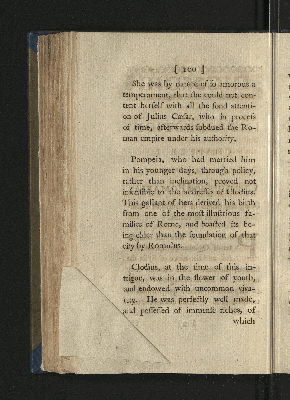 [ 100 ]
She was by nature of so amorous a
temperament, that she could not con-
tent herself with all the fond attenti-
on of Julius Cæsar, who in process
of time, afterwards subdued the Ro-
man empire under his authority.
Pompeia, who had married him
in his younger days, through policy,
rather than inclination, proved not
insensible to the addresses of Clodius.
This gallant of hers derived his birth
from one of the most illustrious fa-
milies of Rome, and boasted its be-
ing older than the foundation of that
city by Romulus.
Clodius, at the time of this in-
trigue, was in the flower of youth,
and endowed with uncommon viva-
city. He was perfectly well made,
and possessed of immense riches, of
which